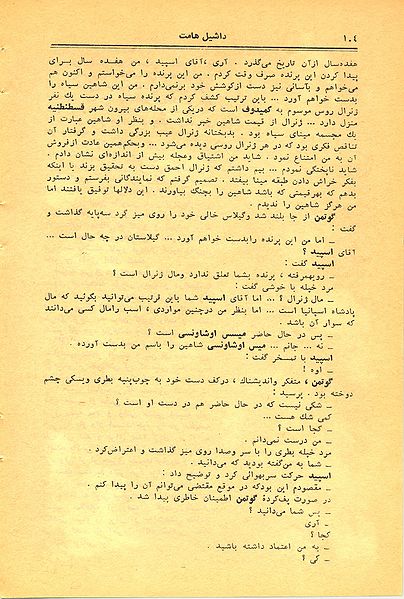 ۱۰٤
داشیل هامت
هفده‌سال ازآن تاریخ می‌گذرد . آری ،آقای اسپید ، من هفده سال برای
پیدا کردن این پرنده صرف وقت کردم . من این پرنده را می‌خواستم و اکنون هم
می‌خواهم و بآسانی نیز دست ازکوشش خود برنمی‌دارم . من این شاهین سیاه را
بدست خواهم آورد ... باین ترتیب کشف کردم که پرنده سیاه در دست یك نفر
ژنرال روس موسوم به کمیدوف است که دریکی از محله‌های بیرون شهر قسطنطنیه
منزل دارد ... ژنرال از قیمت شاهین خبر نداشت . و بنظر او شاهین عبارت از
یك مجسمه مینای سیاه بود . بدبختانه ژنرال عیب بزرگی داشت و گرفتار آن
تناقض فکری بود که در هر ژنرال روسی دیده می‌شود ... وبحکم‌همین عادت ازفروش
آن به من امتناع نمود . شاید من اشتیاق وعجله بیش از اندازه‌ای نشان دادم .
شاید ناپختگی نمودم ... بیم داشتم که ژنرال احمق دست به تحقیق بزند یا اینکه
بفکر خراش دادن طبقه مینا بیفتد . تصمیم گرفتم که نمایندگانی بفرستم و دستور
بدهم که بهرقیمتی که باشد شاهین را بچنگ بیاورند . این دلالها توفیق یافتند اما
من هرگز شاهین را ندیدم .
گوتمن از جا بلند شد وگیلاس خالی خود را روی میز کرد سه‌پایه گذاشت و
گفت :
ـ اما من این پرنده رابدست خواهم آورد ... گیلاستان در چه حال است ...
آقای اسپید ؟
اسپید گفت :
ـ رویهمرفته ، پرنده بشما تعلق ندارد ومال ژنرال است ؟
مرد خپله با خوشی گفت :
ـ مال ژنرال ؟ ... اما آقای اسپید شما باین ترتیب می‌توانید بگوئید که مال
پادشاه اسپانیا است ... اما بنظر من درچنین مواردی ، اسب رامال کسی می‌دانند
که سوار آن باشد .
ـ پس در حال حاضر میسس اوشاونسی است ؟
ـ نه ... جانم ... میس اوشاونسی شاهین را باسم من بدست آورده .
اسپید با تمسخر گفت :
ـ اوه !
گوتمن ، متفکر واندیشناك ، درکف دست خود به چوب‌پنبه بطری ویسکی چشم
دوخته بود . پرسید :
ـ شکی نیست که در حال حاضر هم در دست او است ؟
کمی شك هست ...
ـ کجا است ؟
ـ من درست نمی‌دانم .
مرد خپله بطری را با سر وصدا روی میز گذاشت و اعتراض‌کرد .
ـ شما به من‌گفته بودید که می‌دانید .
اسپید حرکت سربهوائی کرد و توضیح داد :
ـ مقصودم این بودکه در موقع مقتضی می‌توانم آن را پیدا کنم .
در صورت پف‌کردهٔ گوتمن اطمینان خاطری پیدا شد .
ـ پس شما می‌دانید ؟
ـ آری
کجا ؟
ـ به من اعتماد داشته باشید .
ـ کی ؟